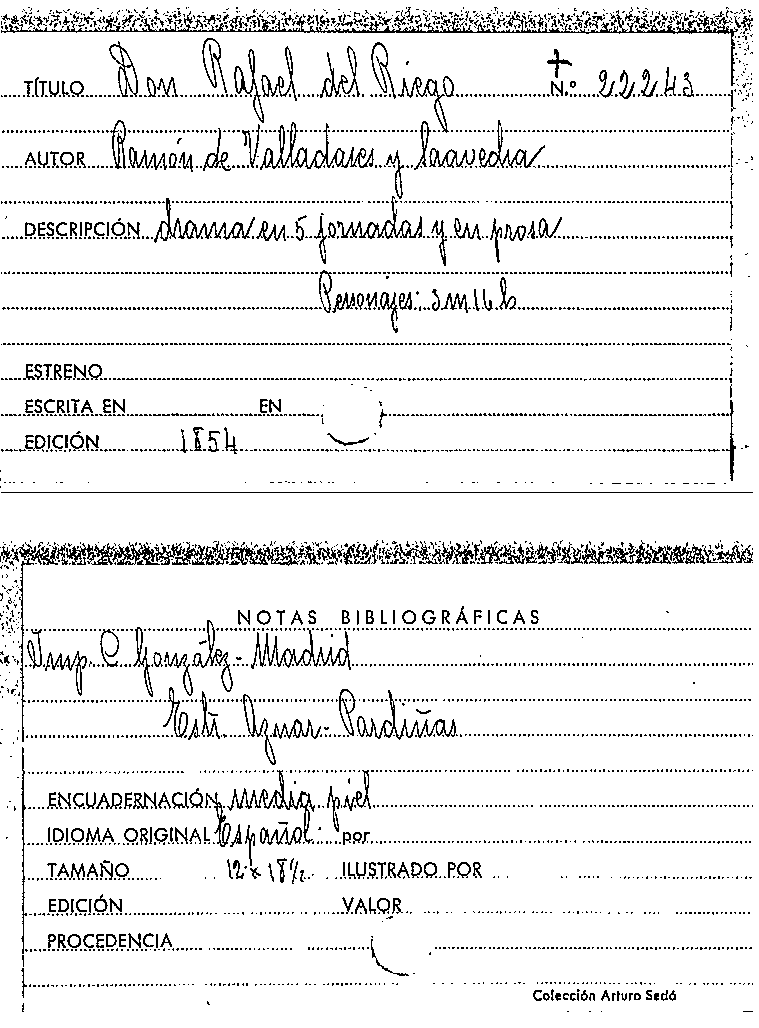 TÍTULO Don Rafael del Riego N.º 22243
AUTOR Ramón de Valladares y Saavedra
DESCRIPCIÓN drama en 5 jornadas y en prosa
Personajes: 3 m 16 h
ESTRENO
ESCRITA EN EN
EDICIÓN 1854
NOTAS BIBLIOGRÁFICAS
Imp. C. González - Madrid
Aznar - Pardiñas
ENCUADERNACIÓN media piel
IDIOMA ORIGINAL Español por
TAMAÑO 12 x 18½ ILUSTRADO POR
EDICIÓN VALOR
PROCEDENCIA
Colección Arturo Sedó